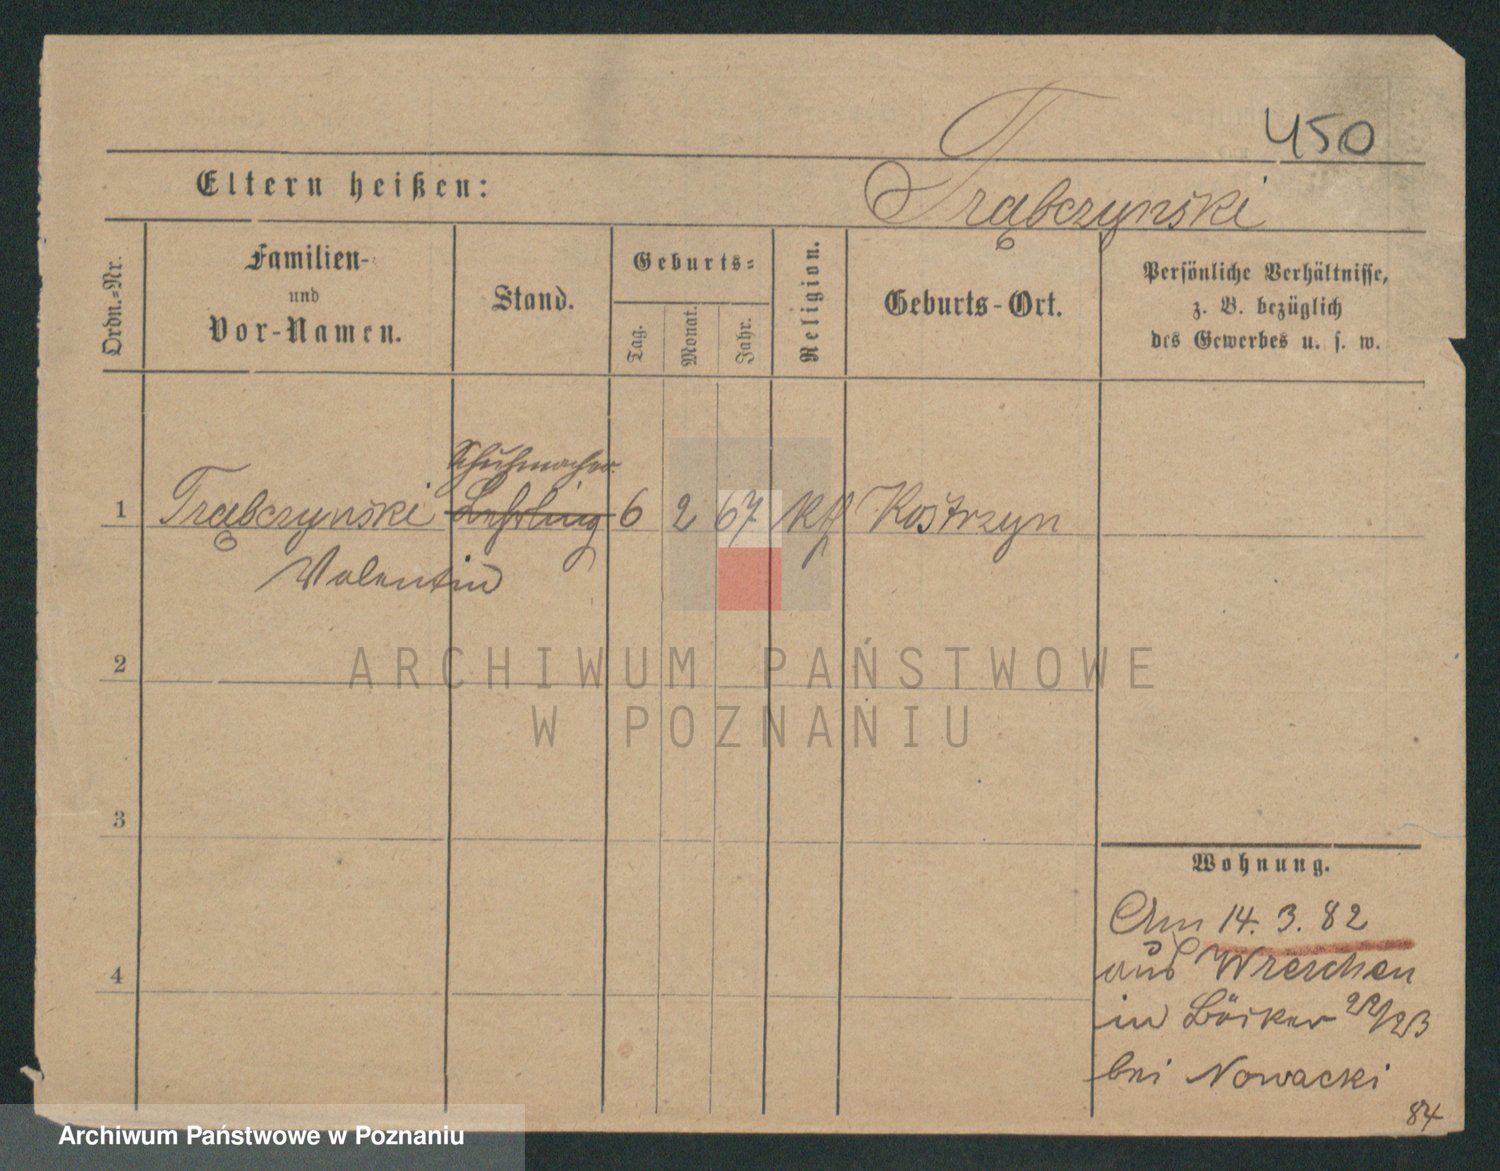 450
Eltern heißen:
Trąbczynski
Ordn.-Nr.
Familien-
und
Vor-Namen.
Stand.
Geburts-
Tag.
Monat.
Jahr.
Religion.
Geburts-Ort.
Persönliche Verhältnisse,
z. B. bezüglich
des Gewerbes u. s. w.
Schuhmacher
1 Trąbczynski Lehrling 6 2 67 kth Kostrzyn
Valentin
2
3
4
Wohnung.
Am 14. 3. 82
aus Wreschen
in Bäcker 22/23
bei Nowacki
84
ARCHIWUM PAŃSTWOWE
W POZNANIU
Archiwum Państwowe w Poznaniu